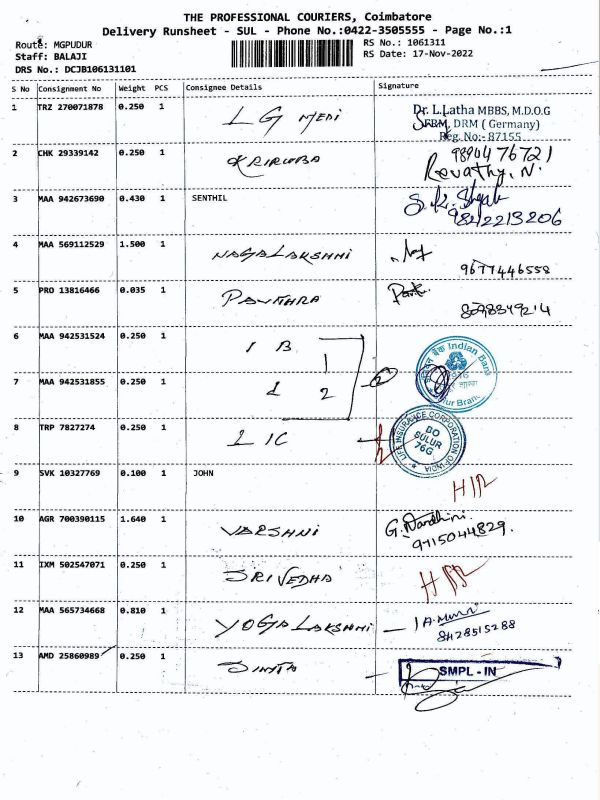 THE PROFESSIONAL COURIERS, Coimbatore
Delivery Runsheet - SUL - Phone No.:0422-3505555 - Page No.:1
Route: MGPUDUR
RS No.: 1061311
Staff: BALAJI
RS Date: 17-Nov-2022
DRS No.: DCJB106131101
S No Consignment No Weight PCS Consignee Details Signature
1 TRZ 270071878 0.250 1 L G MEDI
Dr. L.Latha MBBS, M.D.O.G
DRM ( Germany)
Reg. No:- 87155
2 CHK 29339142 0.250 1
9894476721
Revathy, N.
3 MAA 942673690 0.430 1 SENTHIL
9842213206
4 MAA 569112529 1.500 1 NAGALAKSHMI
9677446558
5 PRO 13816466 0.035 1 PAVITHRA
8098349214
6 MAA 942531524 0.250 1 I B 1
Indian Bank
7 MAA 942531855 0.250 1 2 2
8 TRP 7827274 0.250 1 LIC
LIFE INSURANCE CORPORATION OF INDIA
BO
SULUR
76G
9 SVK 10327769 0.100 1 JOHN
10 AGR 700390115 1.640 1 VARSHNI
G. Nandhini.
9715044829.
11 IXM 502547071 0.250 1 SRIVEDHA
12 MAA 565734668 0.810 1 YOGALAKSHMI
8428515288
13 AMD 25860989 0.250 1
SMPL - IN